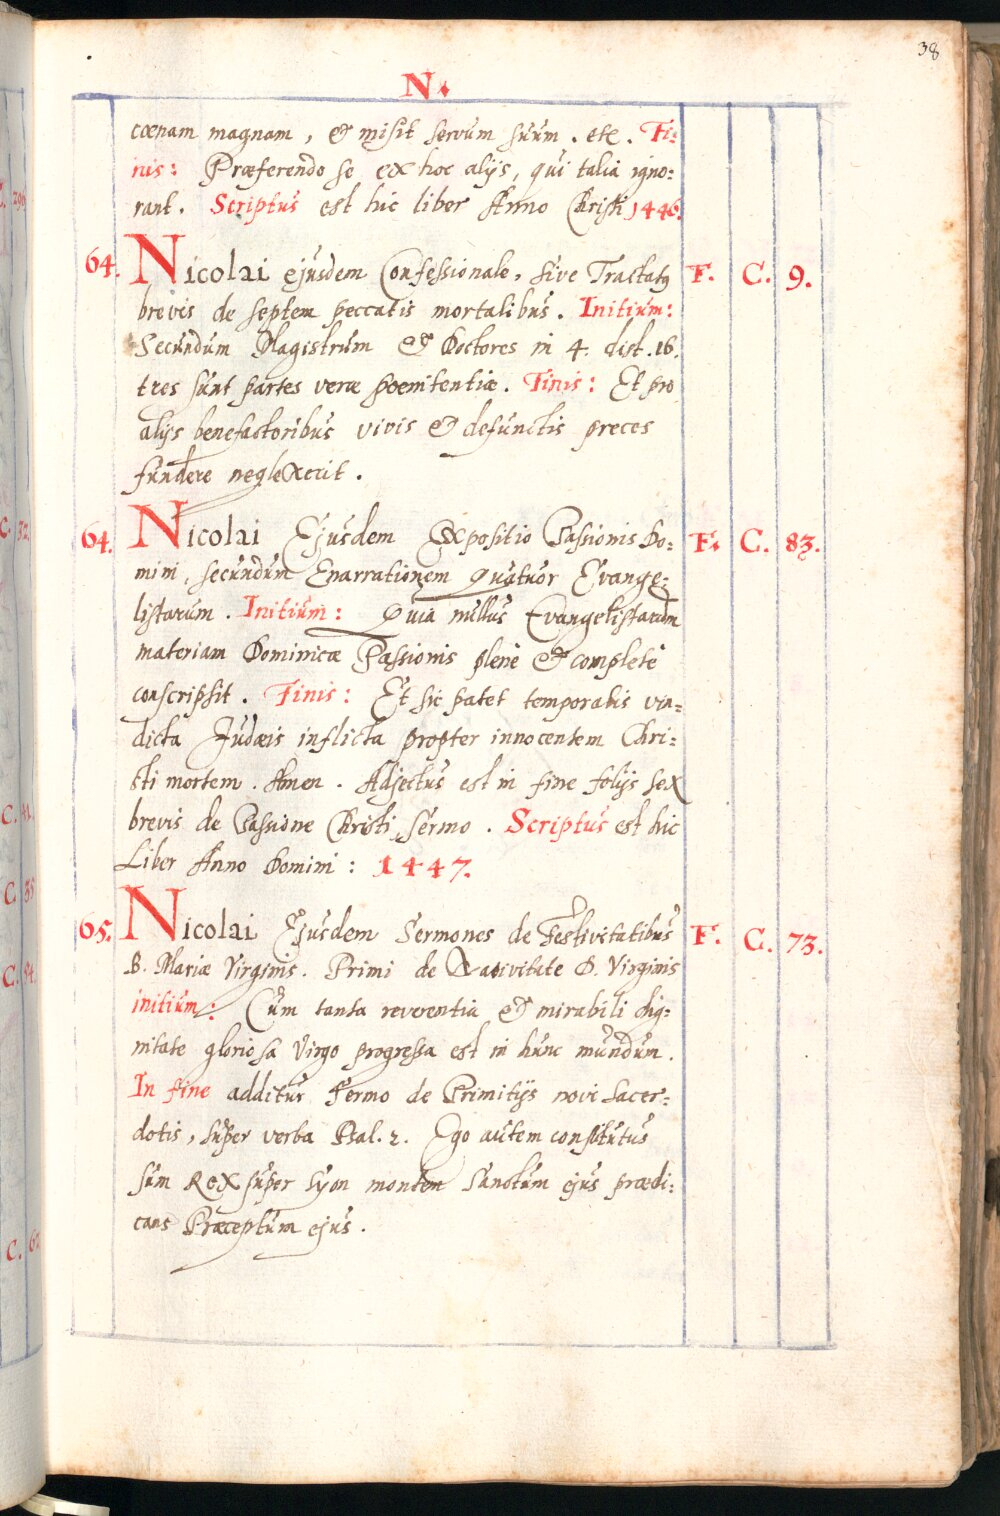 38
N.
cœnam magnam, & misit servum suum. etc. Fi:
nis: Præferendo se ex hoc alijs, qui talia igno:
rant. Scriptus est hic liber Anno Christi 1446.
64. Nicolai ejusdem Confessionale, sive Tractatꝰ F. C. 9.
brevis de septem peccatis mortalibus. Initium:
Secundum Magistrum & Doctores in 4. dist. 16.
tres sunt partes veræ poenitentiæ. Finis: Et pro
alijs benefactoribus vivis & defunctis preces
fundere neglexerit.
64. Nicolai Ejusdem Expositio Passionis Do: F. C. 83.
mini, secundum Enarrationem Quatuor Evange:
listarum. Initium: Quia nullus Evangelistarum
materiam Dominicæ Passionis plene & complete
conscripsit. Finis: Et sic patet temporalis vin:
dicta Judæis inflicta propter innocentem Chri:
sti mortem. Amen. Adjectus est in fine folijs sex
brevis de Passione Christi Sermo. Scriptus est hic
Liber Anno Domini: 1447.
65. Nicolai Ejusdem Sermones de Festivitatibus F. C. 73.
B. Mariæ Virginis. Primi de Nativitate B. Virginis
initium: Cum tanta reverentia & mirabili dig:
nitate gloriosa Virgo progressa est in hunc mundum.
In fine additur Sermo de Primitijs novi Sacer:
dotis, super verba Psal. 2. Ego autem constitutus
sum Rex super Syon montem Sanctum ejus prædi:
cans Præceptum ejus.